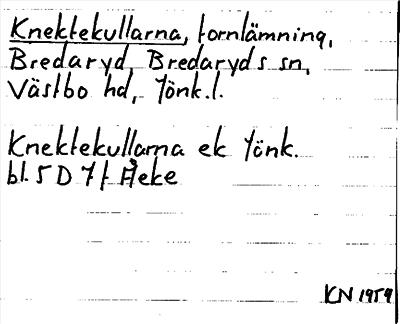 Knektekullarna, fornlämning,
Bredaryd, Bredaryds sn,
Västbo hd, Jönk.l.
Knektekullarna ek Jönk.
bl. 5 D 7 f Åeke
KN 1959